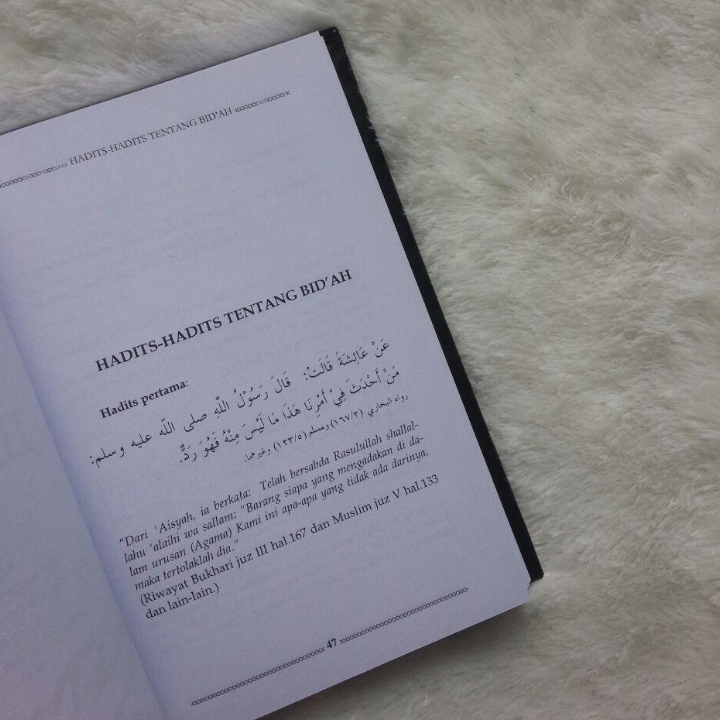 HADITS-HADITS TENTANG BID'AH
HADITS-HADITS TENTANG BID'AH
Hadits pertama:
عَنْ عَائِشَةَ قَالَتْ: قَالَ رَسُوْلُ اللَّهِ صلى اللّه عليه وسلم:
مَنْ أَحْدَثَ فِيْ أَمْرِنَا هَذَا مَا لَيْسَ مِنْهُ فَهُوَ رَدٌّ.
رواه البخاري (٣/١٦٧) ومسلم (٥/١٣٣) وغيرهما.
"Dari 'Aisyah, ia berkata: Telah bersabda Rasulullah shallal-
lahu 'alaihi wa sallam: "Barang siapa yang mengadakan di da-
lam urusan (Agama) Kami ini apa-apa yang tidak ada darinya,
maka tertolaklah dia."
(Riwayat Bukhari juz III hal.167 dan Muslim juz V hal.133
dan lain-lain.)
47